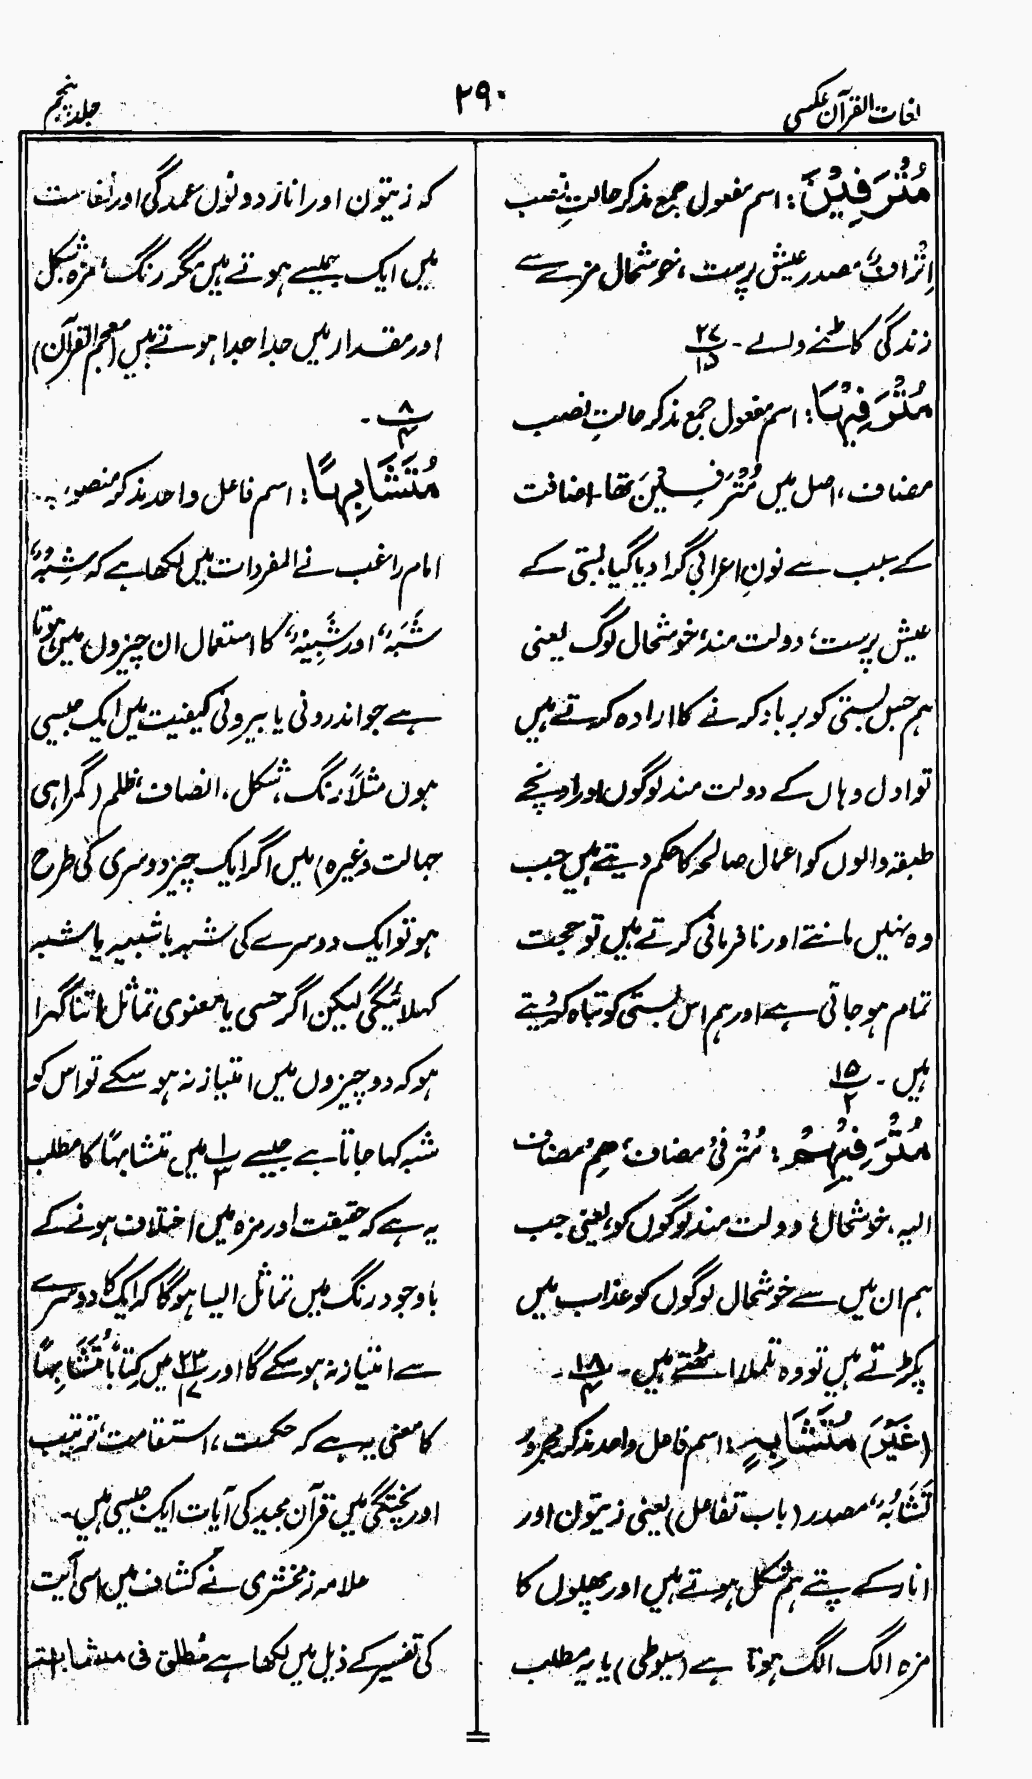 لغات القرآن عکسی
۲۹۰
جلد پنجم
مُتْرَفِیْنَ: اسم مفعول جمع مذکر حالتِ نصب
اِتْرَافٌ، مصدر عیش پرست، خوشحال مزے سے
زندگی کاٹنے والے۔ ۲۷/۱۵
مُتْرَفِیْہَا: اسم مفعول جمع مذکر حالتِ نصب
مضاف، اصل میں مُتْرَفِیْنَ تھا۔ اضافت
کے سبب سے نونِ اعرابی گرا دیا گیا بستی کے
عیش پرست، دولت مند، خوشحال لوگ یعنی
ہم جس بستی کو برباد کرنے کا ارادہ کرتے ہیں
تو اول وہاں کے دولت مند لوگوں اور اونچے
طبقہ والوں کو اعمال صالحہ کا حکم دیتے ہیں جب
وہ نہیں مانتے اور نافرمانی کرتے ہیں تو حجت
تمام ہو جاتی ہے اور ہم اس بستی کو تباہ کر دیتے
ہیں۔ ۱۵/۲
مُتْرَفِیْہِمْ: مُتْرَفِیْ مضاف، ھِمْ مضاف
الیہ، خوشحال، دولت مند لوگوں کو، یعنی جب
ہم ان میں سے خوشحال لوگوں کو عذاب میں
پکڑتے ہیں تو وہ تلملا اٹھتے ہیں۔ ۱۸/۴
(غَیْرَ) مُتَشَابِہٍ: اسم فاعل واحد مذکر مجرور
تَشَابُہٌ، مصدر (باب تفاعل) یعنی زیتون اور
انار کے پتے ہم شکل ہوتے ہیں اور پھلوں کا
مزہ الگ الگ ہوتا ہے (سیوطی) یا یہ مطلب
کہ زیتون اور انار دونوں عمدگی اور نفاست
میں ایک جیسے ہوتے ہیں مگر رنگ، مزہ شکل
اور مقدار میں جدا جدا ہوتے ہیں (معجم القرآن)
۸/۴۔
مُتَشَابِہًا: اسم فاعل واحد مذکر منصوب۔
امام راغب نے المفردات میں لکھا ہے کہ شِبْہٌ،
شَبَہٌ، اور شَبِیْہٌ، کا استعمال ان چیزوں میں ہوتا
ہے جو اندرونی یا بیرونی کیفیت میں ایک جیسی
ہوں مثلاً رنگ، شکل، انصاف، ظلم (گمراہی
جہالت وغیرہ) میں اگر ایک چیز دوسری کی طرح
ہو تو ایک دوسرے کی شبہ یا شبیہ یا شبہ
کہلائیگی لیکن اگر حسی یا معنوی تماثل اتنا گہرا
ہو کہ دو چیزوں میں امتیاز نہ ہو سکے تو اس کو
شبہ کہا جاتا ہے جیسے ۱/۳ میں متشابہًا کا مطلب
یہ ہے کہ حقیقت اور مزہ میں اختلاف ہونے کے
باوجود رنگ میں تماثل ایسا ہوگا کہ ایک کا دوسرے
سے امتیاز نہ ہو سکے گا اور ۲۳/۱۷ میں کِتَابًا مُّتَشَابِہًا
کا معنی یہ ہے کہ حکمت، استقامت، ترتیب
اور پختگی میں قرآن مجید کی آیات ایک جیسی ہیں۔
علامہ زمخشری نے کشاف میں اسی آیت
کی تفسیر کے ذیل میں لکھا ہے مُطلق فی مشابہتہ